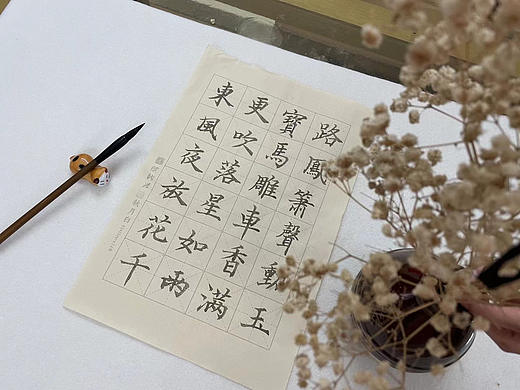 東風夜放花千
更吹落星如雨
寶馬雕車香滿
路鳳簫聲動玉